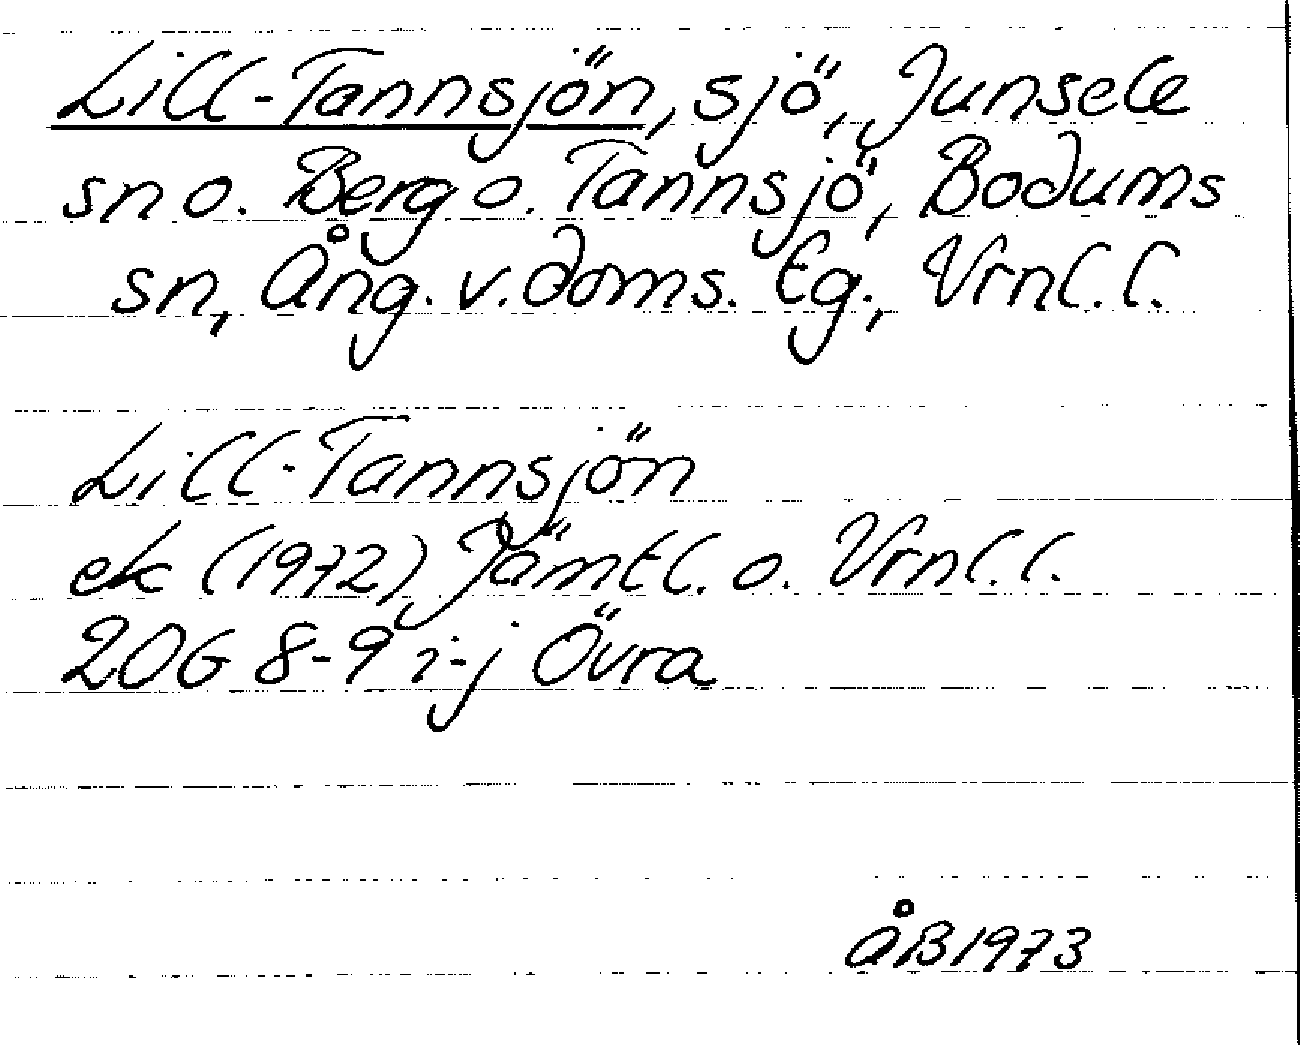 Lill-Tannsjön, sjö, Junsele
sn o. Berg o. Tannsjö, Bodums
sn, Ång. v. doms. tg., Vrnl. l.
Lill-Tannsjön
ek (1972) Jämtl. o. Vrnl. l.
20G 8-9 i-j Övra
ÅB 1973